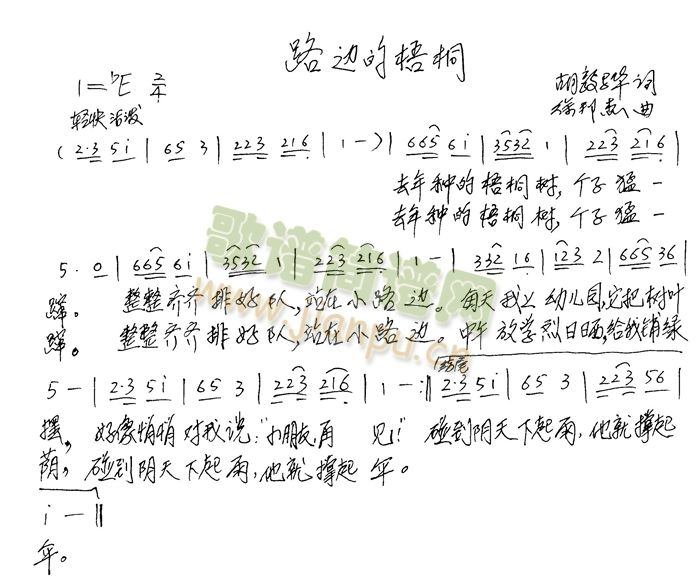 路边的梧桐
1=♭E 2/4
胡敦骅 词
轻快活泼
徐邦杰 曲
(2·3 5i | 65 3 | 223 216 | 1 -) | 665 6i | 3532 1 | 223 216 |
去年种的梧桐树,个子猛一
去年种的梧桐树,个子猛一
5·0 | 665 6i | 3532 1 | 223 216 | 1 - | 332 16 | 123 2 | 665 36 |
蹿。整整齐齐排好队,站在小路边。每天我上幼儿园,它把树叶
蹿。整整齐齐排好队,站在小路边。中午放学烈日晒,给我铺绿
结尾
5 - | 2·3 5i | 65 3 | 223 216 | 1 - :‖ 2·3 5i | 65 3 | 223 56 |
摆,好像悄悄对我说:“小朋友再见!”碰到阴天下起雨,他就撑起
荫,碰到阴天下起雨,他就撑起伞。
i - ‖
伞。
歌谱简谱网
www.jianpu.cn